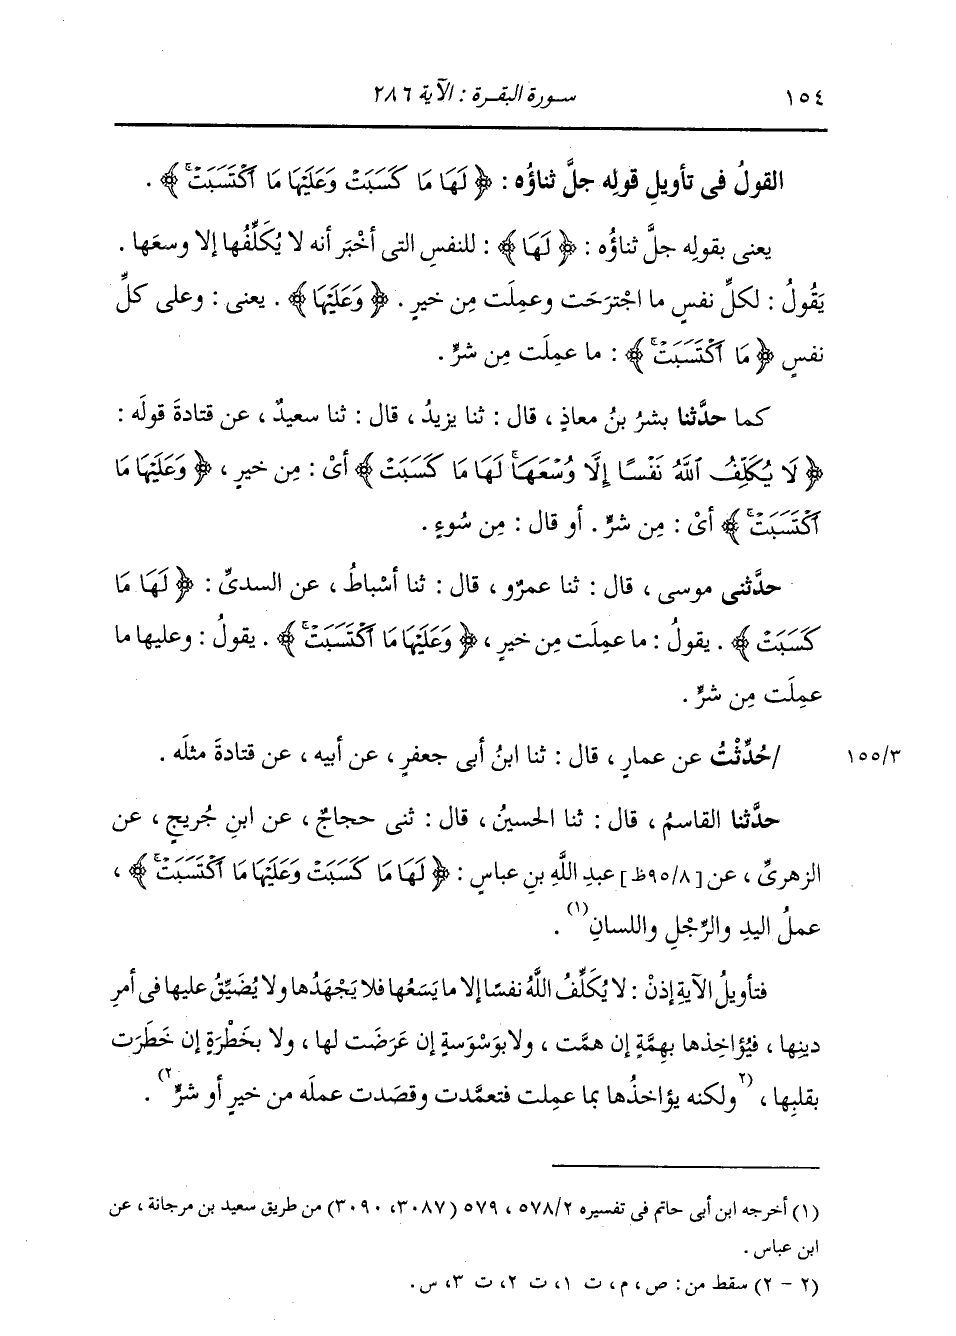 ١٥٤ سورة البقرة : الآية ٢٨٦
القولُ فى تأويلِ قولِه جلَّ ثناؤُه : ﴿ لَهَا مَا كَسَبَتْ وَعَلَيْهَا مَا ٱكْتَسَبَتْۗ ﴾ .
يعنى بقولِه جلَّ ثناؤُه : ﴿ لَهَا ﴾ : للنفسِ التى أخْبَر أنه لا يُكَلِّفُها إلا وسعَها .
يَقُولُ : لكلِّ نفسٍ ما اجترَحَت وعمِلَت مِن خيرٍ . ﴿ وَعَلَيْهَا ﴾ . يعنى : وعلى كلِّ
نفسٍ ﴿ مَا ٱكْتَسَبَتْۗ ﴾ : ما عمِلَت مِن شرٍّ .
كما حدَّثنا بشرُ بنُ معاذٍ ، قال : ثنا يزيدُ ، قال : ثنا سعيدٌ ، عن قتادةَ قولَه :
﴿ لَا يُكَلِّفُ ٱللَّهُ نَفْسًا إِلَّا وُسْعَهَاۚ لَهَا مَا كَسَبَتْ ﴾ أىْ : مِن خيرٍ ، ﴿ وَعَلَيْهَا مَا
ٱكْتَسَبَتْۗ ﴾ أىْ : مِن شرٍّ . أو قال : مِن سُوءٍ .
حدَّثنى موسى ، قال : ثنا عمرٌو ، قال : ثنا أسْباطُ ، عن السدىِّ : ﴿ لَهَا مَا
كَسَبَتْ ﴾ . يقولُ : ما عمِلَت مِن خيرٍ ، ﴿ وَعَلَيْهَا مَا ٱكْتَسَبَتْۗ ﴾ . يقولُ : وعليها ما
عمِلَت مِن شرٍّ .
١٥٥/٣ /حُدِّثْتُ عن عمارٍ ، قال : ثنا ابنُ أبى جعفرٍ ، عن أبيه ، عن قتادةَ مثلَه .
حدَّثنا القاسمُ ، قال : ثنا الحسينُ ، قال : ثنى حجاجٌ ، عن ابنِ جُريجٍ ، عن
الزهرىِّ ، عن [٩٥/٨ظ] عبدِ اللَّهِ بنِ عباسٍ : ﴿ لَهَا مَا كَسَبَتْ وَعَلَيْهَا مَا ٱكْتَسَبَتْۗ ﴾ ،
عملُ اليدِ والرِّجْلِ واللسانِ(١) .
فتأويلُ الآيةِ إذنْ : لا يُكَلِّفُ اللَّهُ نفسًا إلا ما يَسَعُها فلا يَجْهَدُها ولا يُضَيِّقُ عليها فى أمرِ
دينِها ، فيُؤاخِذها بهِمَّةٍ إن همَّت ، ولا بوَسْوَسةٍ إن عَرَضَت لها ، ولا بخَطْرَةٍ إن خَطَرَت
بقلبِها ، (٢ولكنه يؤاخذُها بما عمِلت فتعمَّدت وقصَدت عملَه من خيرٍ أو شرٍّ٢) .
(١) أخرجه ابن أبى حاتم فى تفسيره ٥٧٨/٢ ، ٥٧٩ (٣٠٨٧، ٣٠٩٠) من طريق سعيد بن مرجانة ، عن
ابن عباس .
(٢ - ٢) سقط من : ص ، م ، ت ١، ت ٢، ت ٣، س .